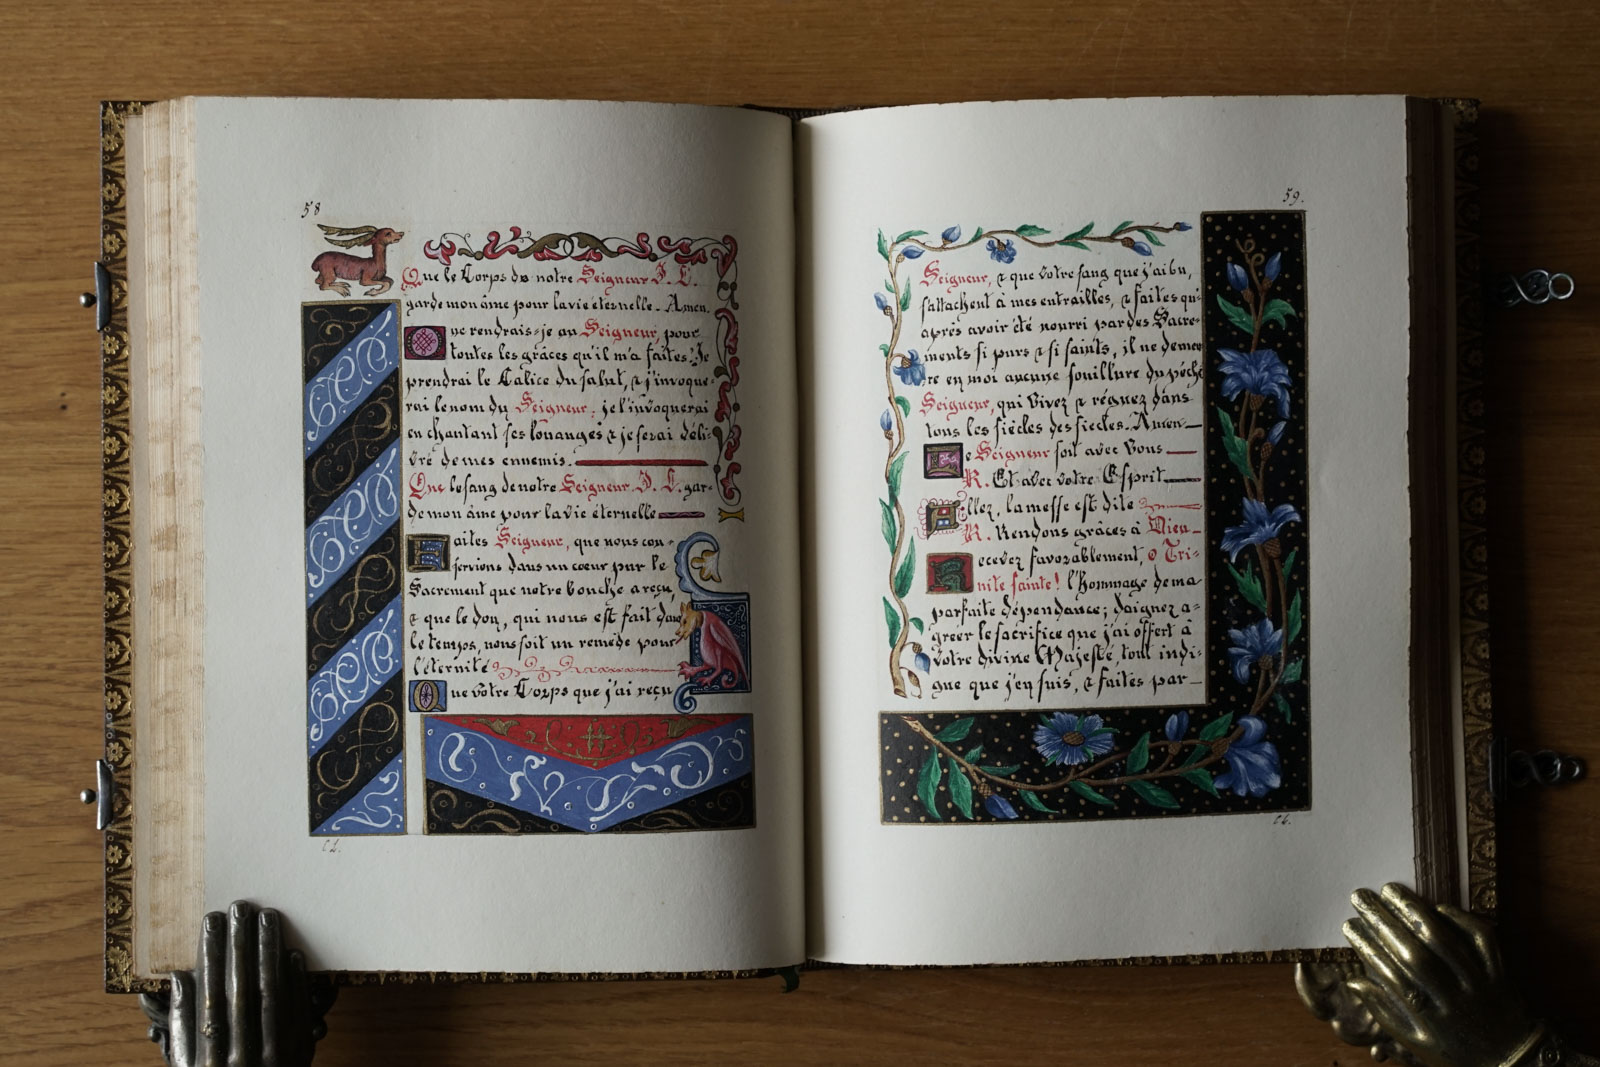 58
Que le Corps de notre Seigneur J. C.
garde mon âme pour la vie éternelle. Amen.
Que rendrais-je au Seigneur, pour
toutes les grâces qu'il m'a faites? Je
prendrai le Calice du salut, & j'invoque-
rai le nom du Seigneur; je l'invoquerai
en chantant ses louanges & je serai déli-
vré de mes ennemis.
Que le sang de notre Seigneur J. C. gar-
de mon âme pour la vie éternelle
Faites Seigneur, que nous con-
servions dans un coeur pur le
Sacrement que notre bouche a reçu,
& que le don, qui nous est fait dans
le temps, nous soit un remède pour
l'éternité
Que votre Corps que j'ai reçu
C L.
59.
Seigneur, & que votre sang que j'ai bu,
s'attachent à mes entrailles, & faites qu'
après avoir été nourri par des Sacre-
ments si purs & si saints, il ne demeu
re en moi aucune souillure du péché
Seigneur, qui vivez & régnez dans
tous les siècles des siecles. Amen
Le Seigneur soit avec vous
R. Et avec votre Esprit
Allez, la messe est dite
R. Rendons grâces à Dieu
Recevez favorablement, o Tri-
nité sainte! l'hommage de ma
parfaite dépendance; daignez a-
gréer le sacrifice que j'ai offert à
votre divine Majesté, tout indi-
gne que j'en suis, & faites par-
C L.